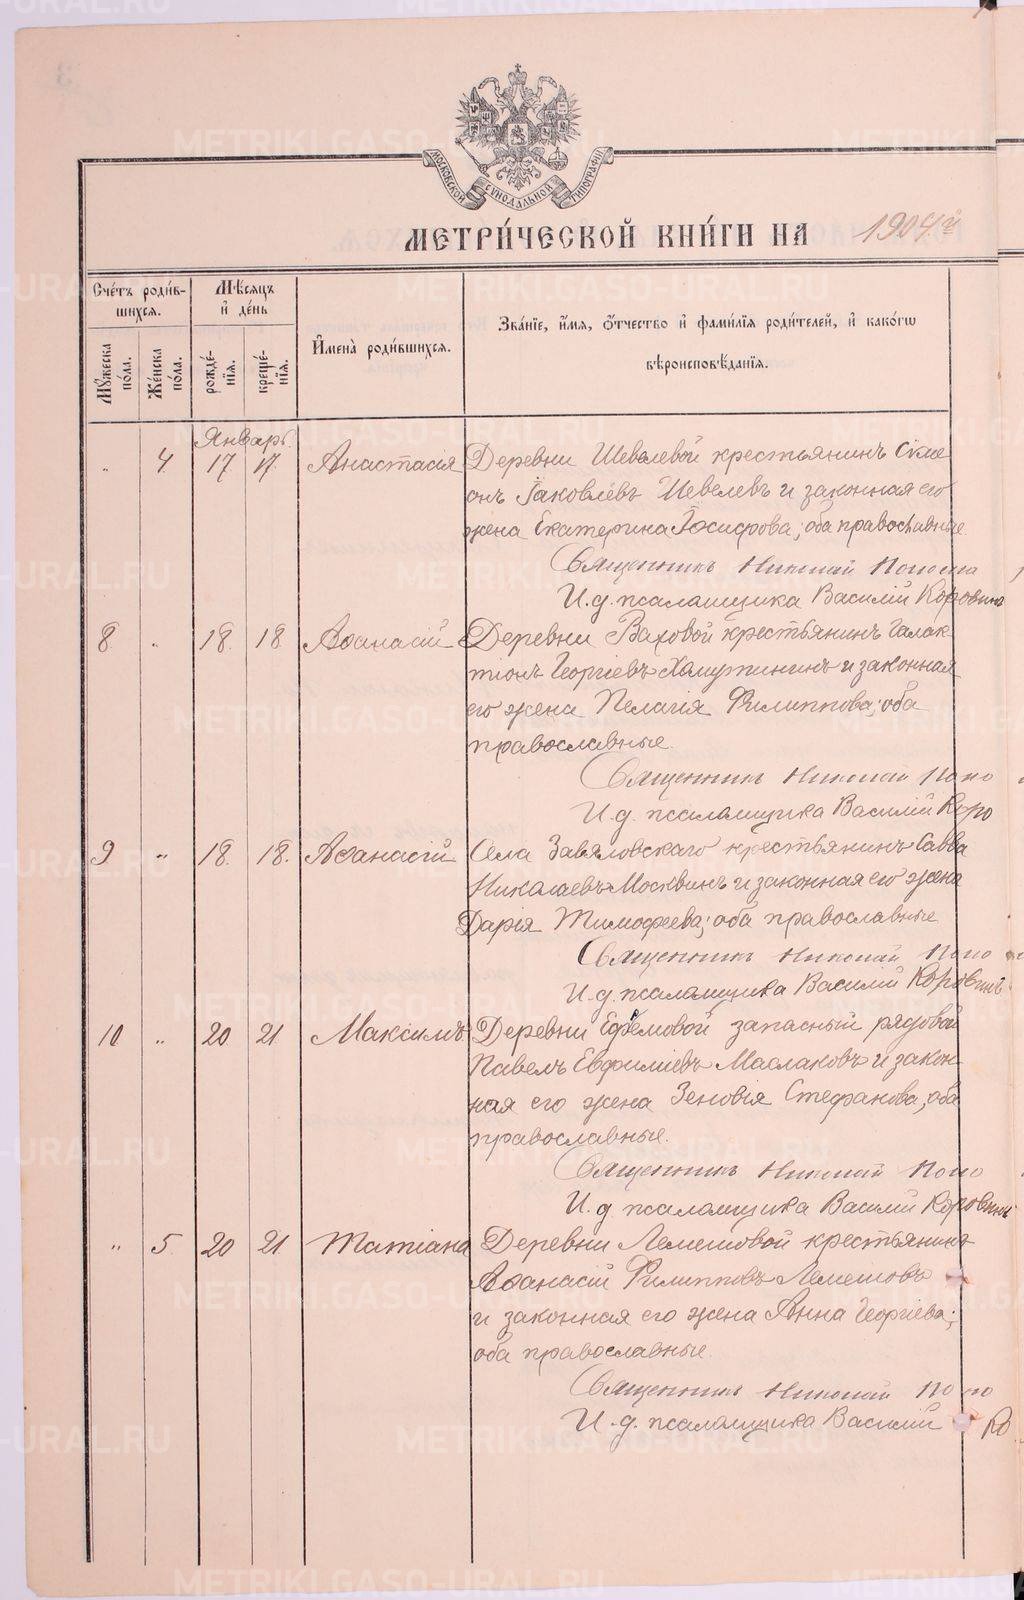 МОСКОВСКОЙ СУНОДАЛЬНОЙ ТИПОГРАФІИ
МЕТРИ́ЧЕСКОЙ КНИ́ГИ НА 1904й
Сче́тъ роди́в-
шихся.
Мѣсяцъ
и҆ де́нь
И҆мена̀ роди́вшихся.
Зва́нїе, и҆́мя, ѻ҆́тчество и҆ фами́лїя роди́телей, и҆ како́гѡ
вѣроисповѣ́данїя.
Мꙋ́жеска по́ла.
Же́нска по́ла.
рожде́-нїя.
креще́-нїя.
Январь.
„ 4 17 17. Анастасія Деревни Шевелевой крестьянинъ Сѵме
онъ Іаковлевъ Шевелевъ и законная его
жена Екатерина Іосифова; оба православные.
Священникъ Николай Попо
И.д. псаломщика Василій Коровинъ
8 „ 18. 18. Аѳанасій Деревни Ваховой крестьянинъ Галак
тіонъ Георгіевъ и законная
его жена Пелагія Филиппова; оба
православные.
Священникъ Николай Попо
И.д. псаломщика Василій Коро
9 „ 18. 18. Аѳанасій Села Завяловскаго крестьянинъ Савва
Николаевъ Москвинъ и законная его жена
Дарія Тимофеева; оба православные
Священникъ Николай Попо
И.д. псаломщика Василій Коровинъ
10 „ 20 21. Максимъ Деревни Ефремовой запасный рядовой
Павелъ Евфиміевъ Маслаковъ и закон-
ная его жена Зеновія Стефанова, оба
православные.
Священникъ Николай Попо
И.д. псаломщика Василій Коровинъ
„ 5 20 21. Татіана Деревни Лемешовой крестьянинъ
Аѳанасій Филипповъ Лемешовъ
и законная его жена Анна Георгіева;
оба православные.
Священникъ Николай Попо
И.д. псаломщика Василій Ко
METRIKI.GASO-URAL.RU